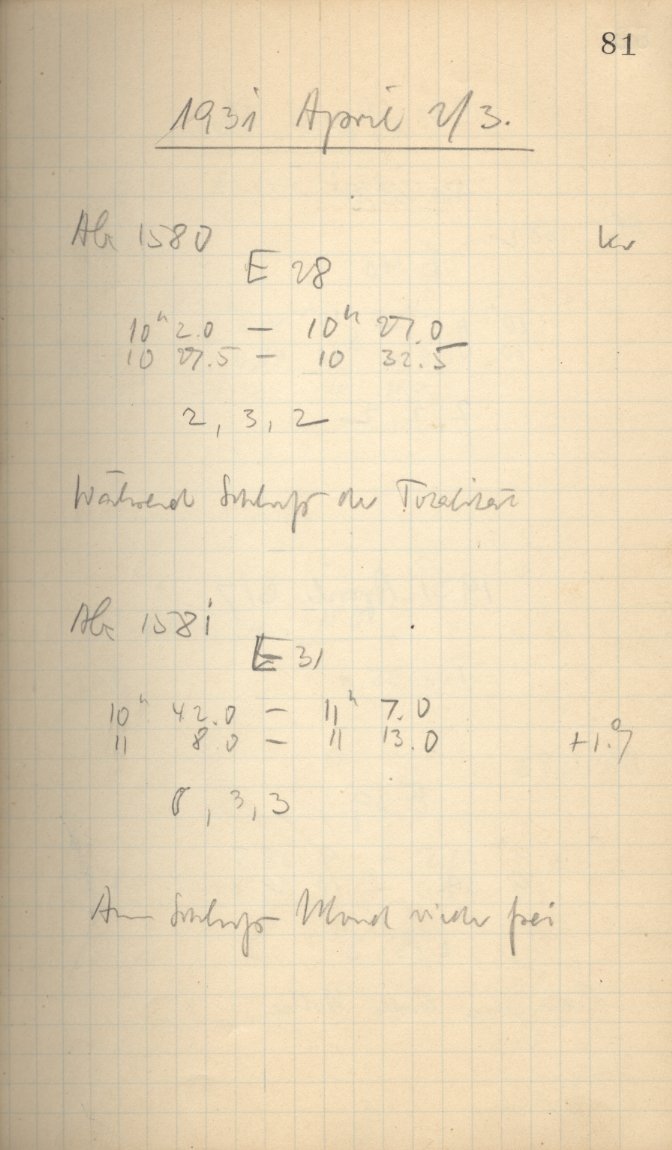 81
1931 April 2/3.
Ab 1580 Kr
E 28
10ʰ 2.0 — 10ʰ 27.0
10 27.5 — 10 32.5
2, 3, 2
Während Schluß der Totalität
Ab 1581
E 31
10ʰ 42.0 — 11ʰ 7.0
11 8.0 — 11 13.0 +1.°7
3, 3
Am Schluß Mond wieder frei